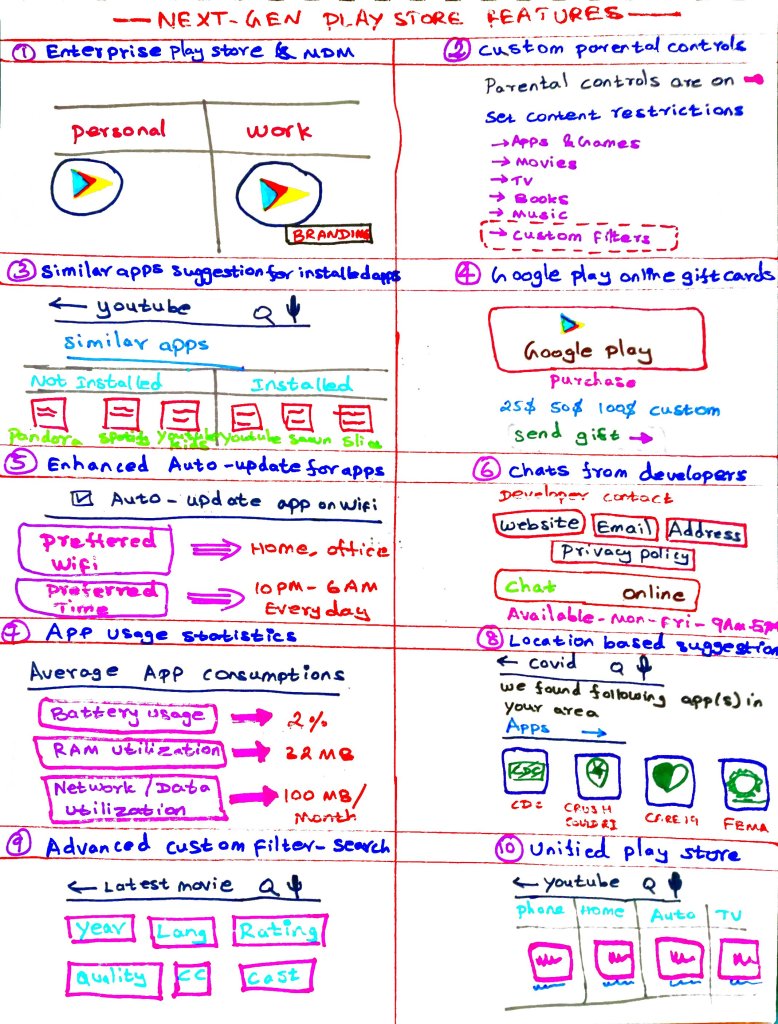 NEXT-GEN PLAY STORE FEATURES
① Enterprise play store & MDM
personal work
BRANDING
② Custom parental controls
Parental controls are on
Set content restrictions
→ Apps & Games
→ Movies
→ TV
→ Books
→ Music
→ Custom Filters
③ Similar apps suggestion for installed apps
← youtube
Similar apps
Not Installed Installed
Pandora spotify youtube kids youtube sawn Slice
④ Google play online gift cards
Google play
purchase
25$ 50$ 100$ custom
send gift →
⑤ Enhanced Auto-update for apps
☑ Auto-update app on wifi
Preffered Wifi ⇒ Home, office
Preferred Time ⇒ 10PM-6AM Everyday
⑥ Chats from developers
Developer contact
Website Email Address
Privacy policy
Chat online
Available-Mon-Fri-9AM-5PM
⑦ App usage statistics
Average App consumptions
Battery usage → 2%
RAM Utilization → 32 MB
Network/Data Utilization → 100 MB/Month
⑧ Location based suggestion
← covid
we found following app(s) in
your area
Apps →
CDC
CDC CRUSH COVID RI CARE19 FEMA
⑨ Advanced custom filter-search
← Latest movie
Year Lang Rating
Quality CC Cast
⑩ Unified play store
← youtube
phone Home Auto TV